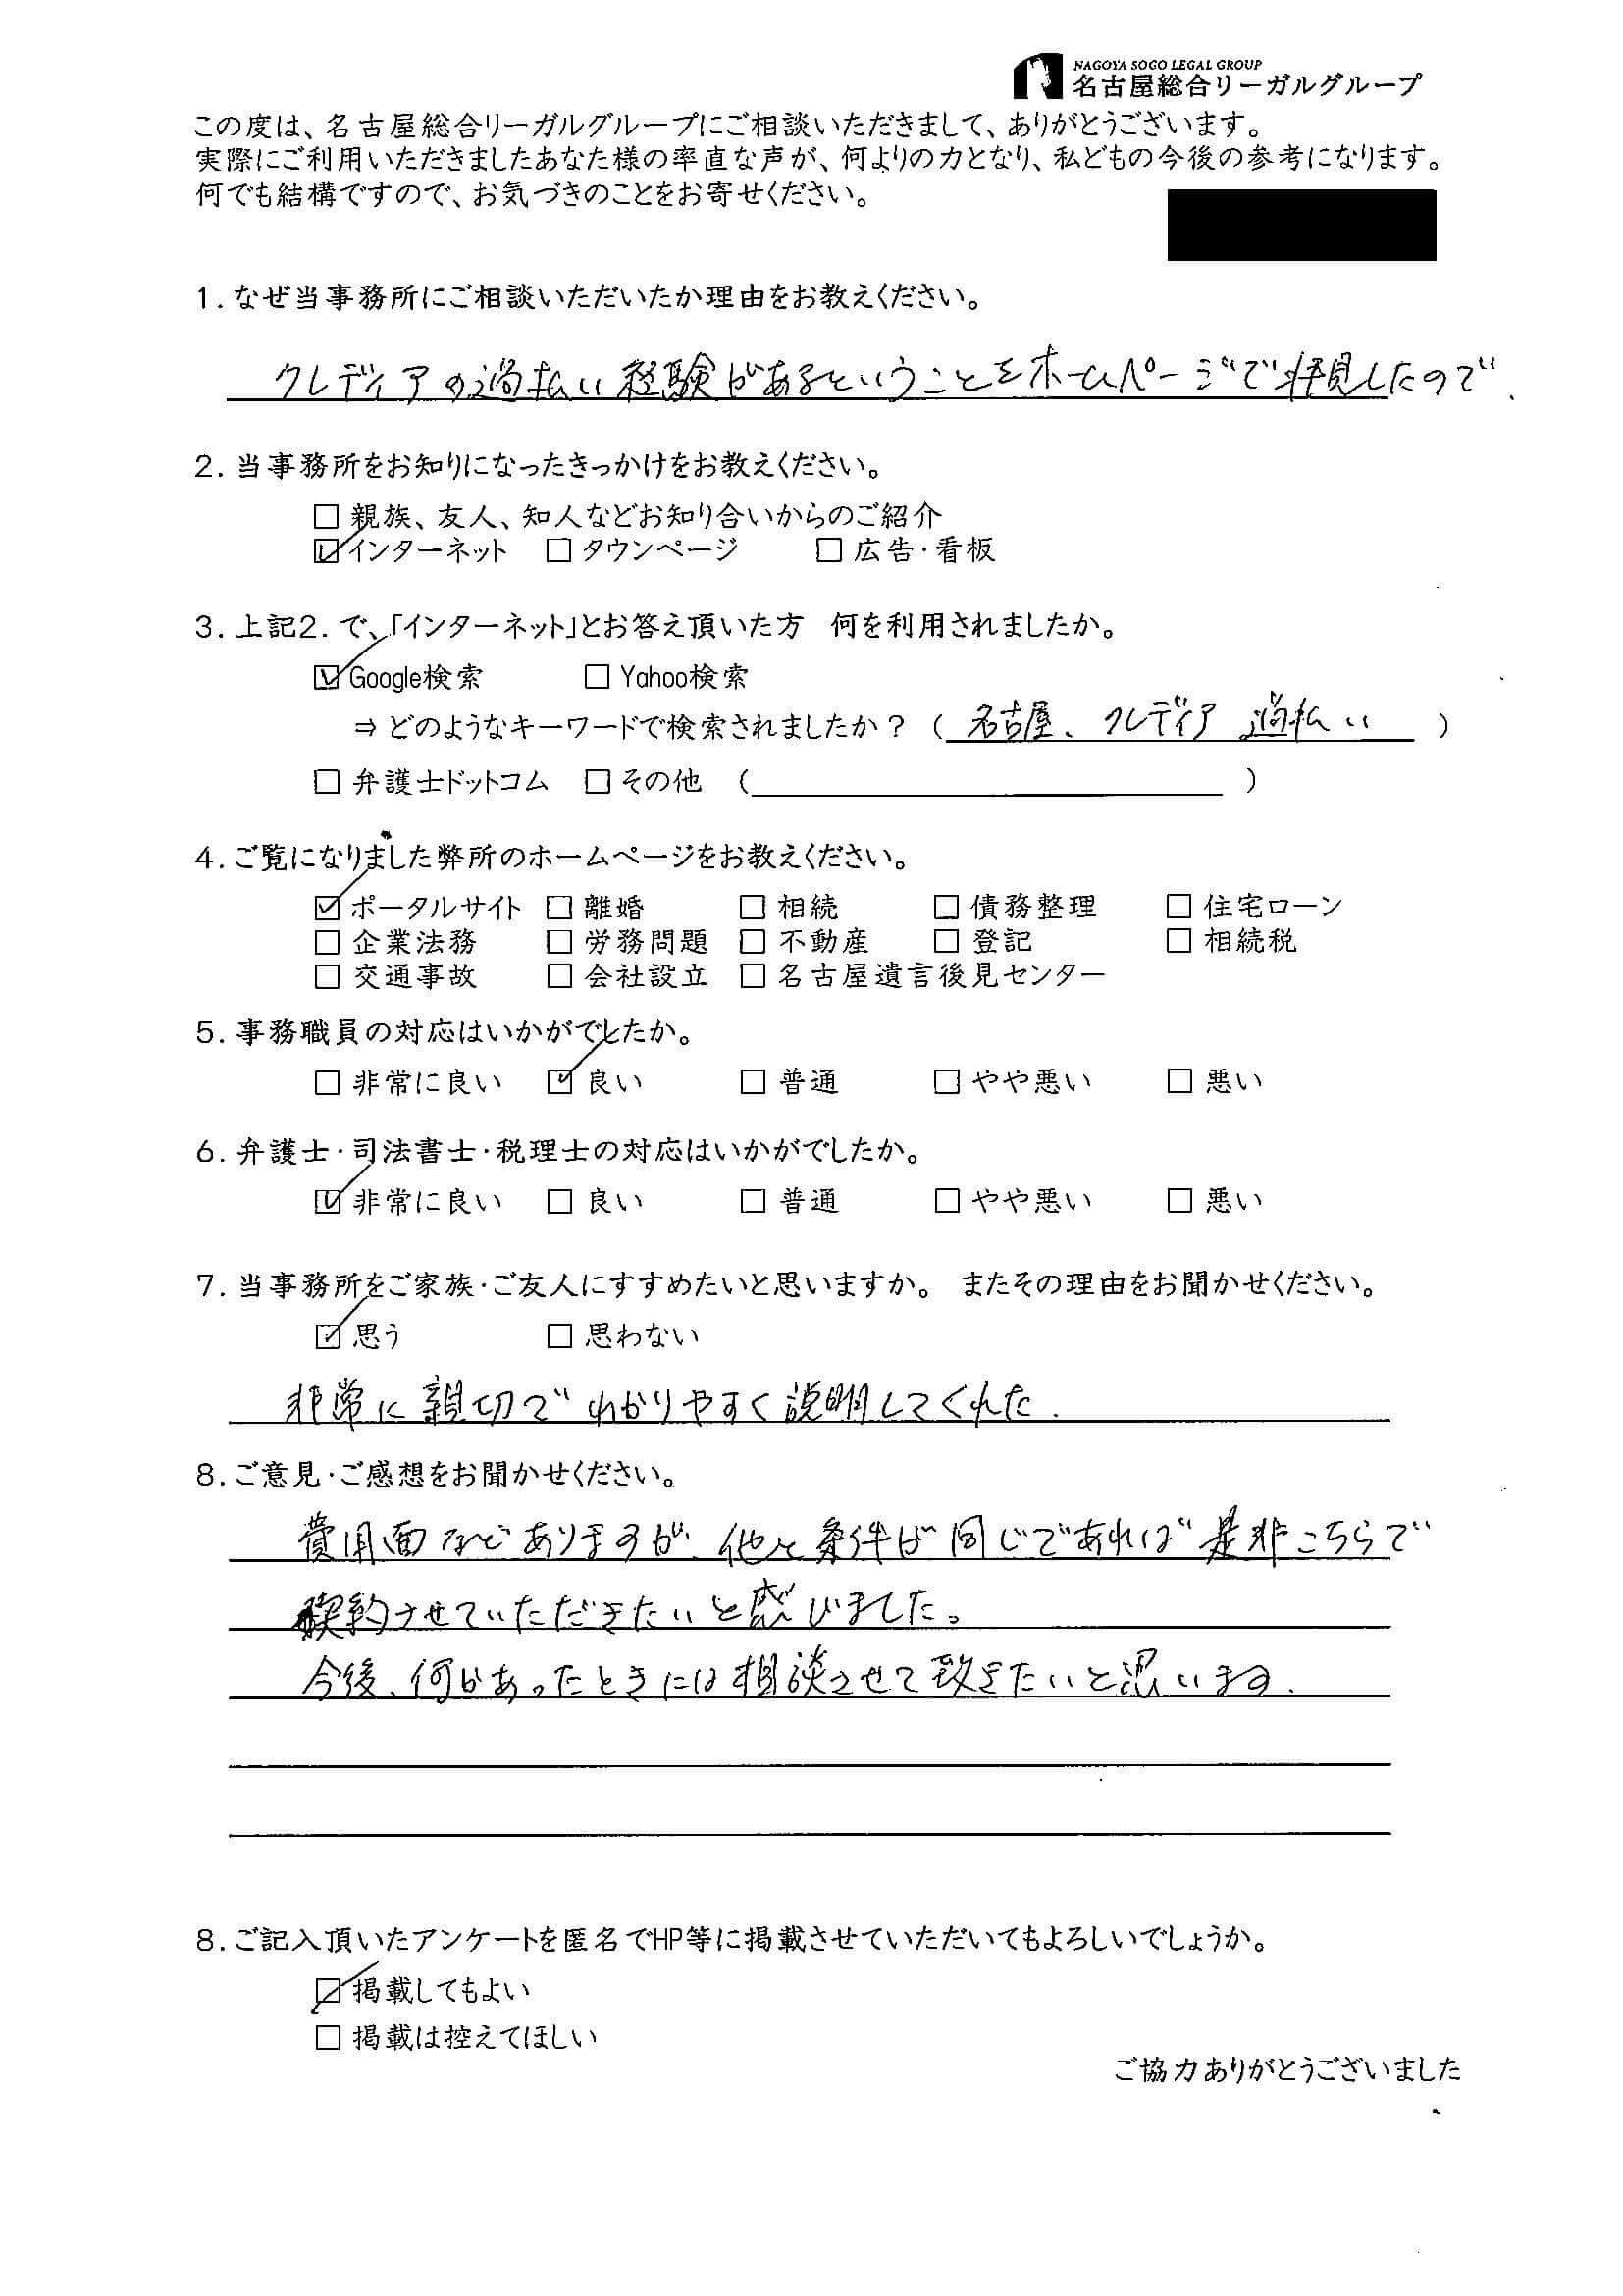 NAGOYA SOGO LEGAL GROUP
名古屋総合リーガルグループ
この度は、名古屋総合リーガルグループにご相談いただきまして、ありがとうございます。
実際にご利用いただきましたあなた様の率直な声が、何よりの力となり、私どもの今後の参考になります。
何でも結構ですので、お気づきのことをお寄せください。
1. なぜ当事務所にご相談いただいたか理由をお教えください。
クレディアの過払い経験があるということをホームページで拝見したので、
2. 当事務所をお知りになったきっかけをお教えください。
□ 親族、友人、知人などお知り合いからのご紹介
☑ インターネット □ タウンページ □ 広告・看板
3. 上記2. で、「インターネット」とお答え頂いた方 何を利用されましたか。
☑ Google検索 □ Yahoo検索
⇒ どのようなキーワードで検索されましたか？ （ 名古屋、クレディア 過払い ）
□ 弁護士ドットコム □ その他 （ ）
4. ご覧になりました弊所のホームページをお教えください。
☑ ポータルサイト □ 離婚 □ 相続 □ 債務整理 □ 住宅ローン
□ 企業法務 □ 労務問題 □ 不動産 □ 登記 □ 相続税
□ 交通事故 □ 会社設立 □ 名古屋遺言後見センター
5. 事務職員の対応はいかがでしたか。
□ 非常に良い ☑ 良い □ 普通 □ やや悪い □ 悪い
6. 弁護士・司法書士・税理士の対応はいかがでしたか。
☑ 非常に良い □ 良い □ 普通 □ やや悪い □ 悪い
7. 当事務所をご家族・ご友人にすすめたいと思いますか。 またその理由をお聞かせください。
☑ 思う □ 思わない
非常に親切でわかりやすく説明してくれた.
8. ご意見・ご感想をお聞かせください。
費用面などありますが、他と条件が同じであれば是非こちらで
契約させていただきたいと感じました。
今後、何かあったときには相談させて致きたいと思います.
8. ご記入頂いたアンケートを匿名でHP等に掲載させていただいてもよろしいでしょうか。
☑ 掲載してもよい
□ 掲載は控えてほしい
ご協力ありがとうございました